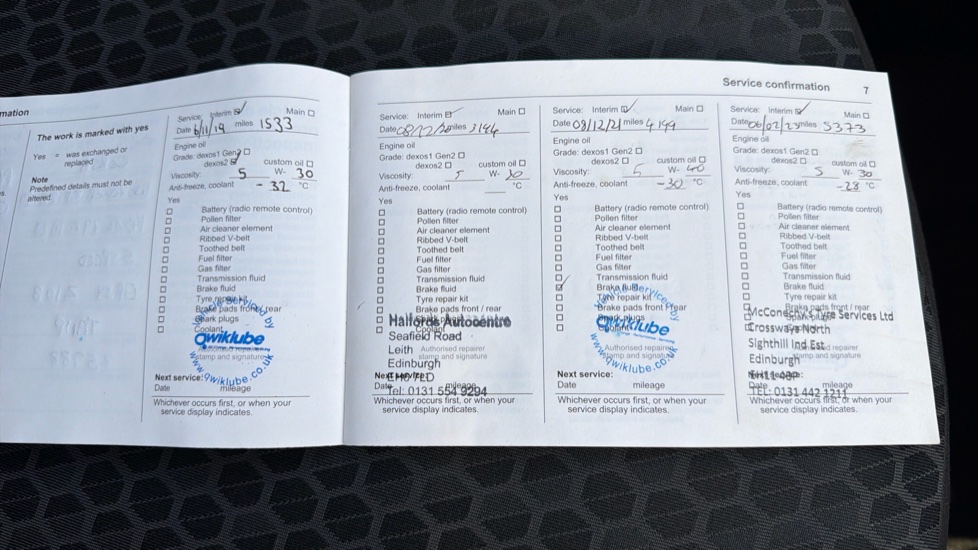 mation
The work is marked with yes
Yes = was exchanged or
replaced
Note
Predefined details must not be
altered.
Service: Interim Main
Date 6/11/19 miles 1533
Engine oil
Grade: dexos1 Gen2
dexos2 custom oil
Viscosity: 5 W- 30
Anti-freeze, coolant - 32 °C
Yes
Battery (radio remote control)
Pollen filter
Air cleaner element
Ribbed V-belt
Toothed belt
Fuel filter
Gas filter
Transmission fluid
Brake fluid
Tyre repair kit
Brake pads front / rear
Spark plugs
Coolant
Vehicle Serviced by
Qwiklube
www.qwiklube.co.uk
stamp and signature
Next service:
Date mileage
Whichever occurs first, or when your
service display indicates.
Service confirmation 7
Service: Interim Main
Date 08/12/20 miles 3144
Engine oil
Grade: dexos1 Gen2
dexos2 custom oil
Viscosity: 5 W- 30
Anti-freeze, coolant °C
Yes
Battery (radio remote control)
Pollen filter
Air cleaner element
Ribbed V-belt
Toothed belt
Fuel filter
Gas filter
Transmission fluid
Brake fluid
Tyre repair kit
Brake pads front / rear
Coolant
Halfords Autocentre
Seafield Road
Leith Authorised repairer
Edinburgh stamp and signature
Next service:
EH6 7LD
Date mileage
Tel: 0131 554 9294
Whichever occurs first, or when your
service display indicates.
Service: Interim Main
Date 08/12/21 miles 4199
Engine oil
Grade: dexos1 Gen2
dexos2 custom oil
Viscosity: 5 W- 40
Anti-freeze, coolant -30 °C
Yes
Battery (radio remote control)
Pollen filter
Air cleaner element
Ribbed V-belt
Toothed belt
Fuel filter
Gas filter
Transmission fluid
Brake fluid
Tyre repair kit
Brake pads front / rear
Spark plugs
Coolant
Vehicle Serviced by
Qwiklube
www.qwiklube.co.uk
Authorised repairer
stamp and signature
Next service:
Date mileage
Whichever occurs first, or when your
service display indicates.
Service: Interim Main
Date 06/02/23 miles 5373
Engine oil
Grade: dexos1 Gen2
dexos2 custom oil
Viscosity: 5 W- 30
Anti-freeze, coolant -28 °C
Yes
Battery (radio remote control)
Pollen filter
Air cleaner element
Ribbed V-belt
Toothed belt
Fuel filter
Gas filter
Transmission fluid
Brake fluid
Tyre repair kit
Brake pads front / rear
McConechy's Tyre Services Ltd
Crossway North
Sighthill Ind Est
Edinburgh stamp and signature
Date mileage
TEL: 0131 442 1211
Whichever occurs first, or when your
service display indicates.